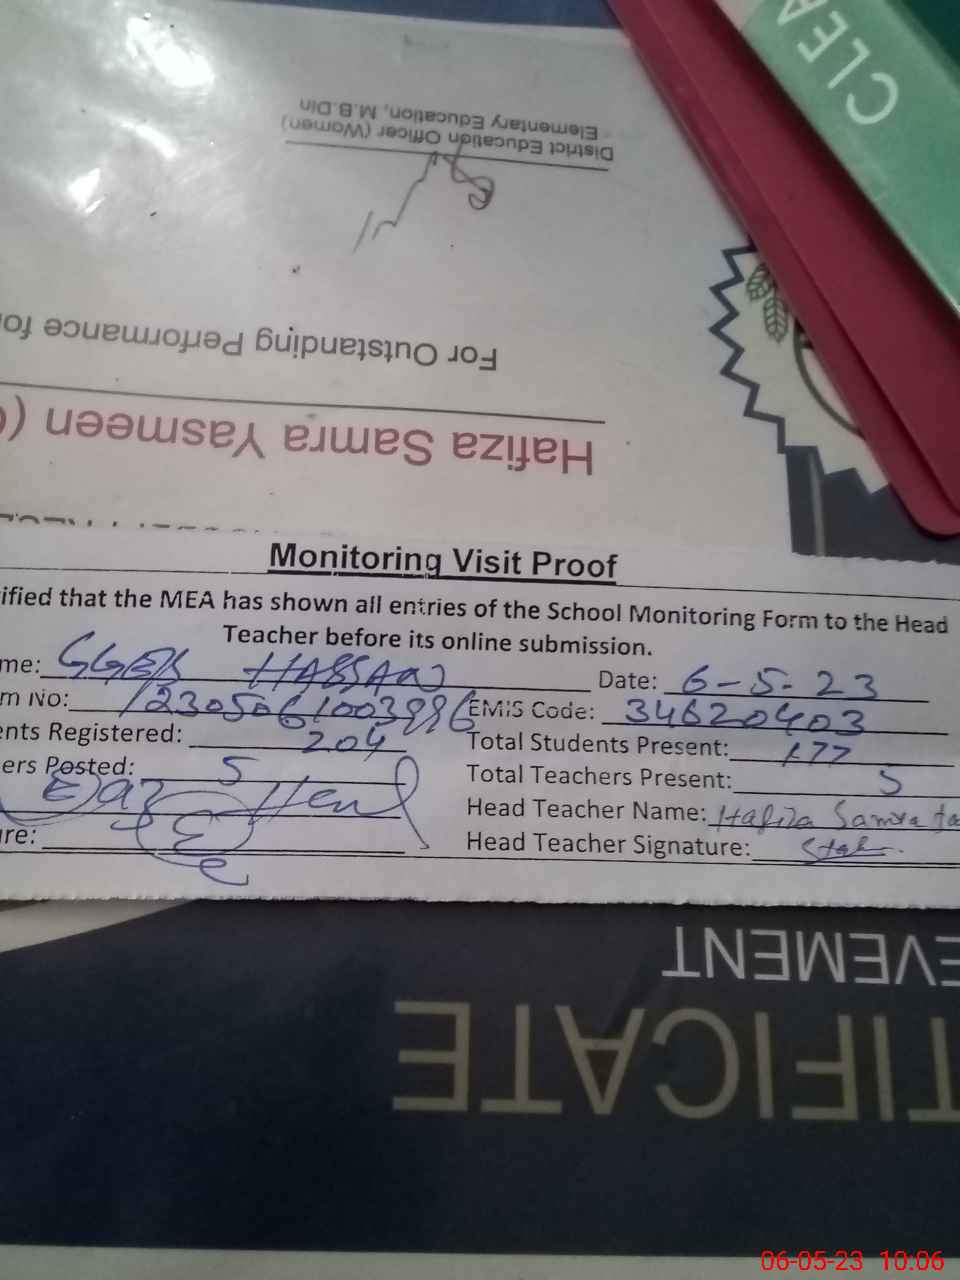 CLEA
Elementary Education, M.B.Din
District Education Officer (Women)
For Outstanding Performance for
Hafiza Samra Yasmeen (
Monitoring Visit Proof
ified that the MEA has shown all entries of the School Monitoring Form to the Head
Teacher before its online submission.
me: GGES HASSAN Date: 6-5-23
m No: EMIS Code: 34620403
ents Registered: 204 Total Students Present: 177
ers Posted: 5 Total Teachers Present: 5
Head Teacher Name: Hafiza Samra
re: Head Teacher Signature:
EVEMENT
TIFICATE
06-05-23 10:06